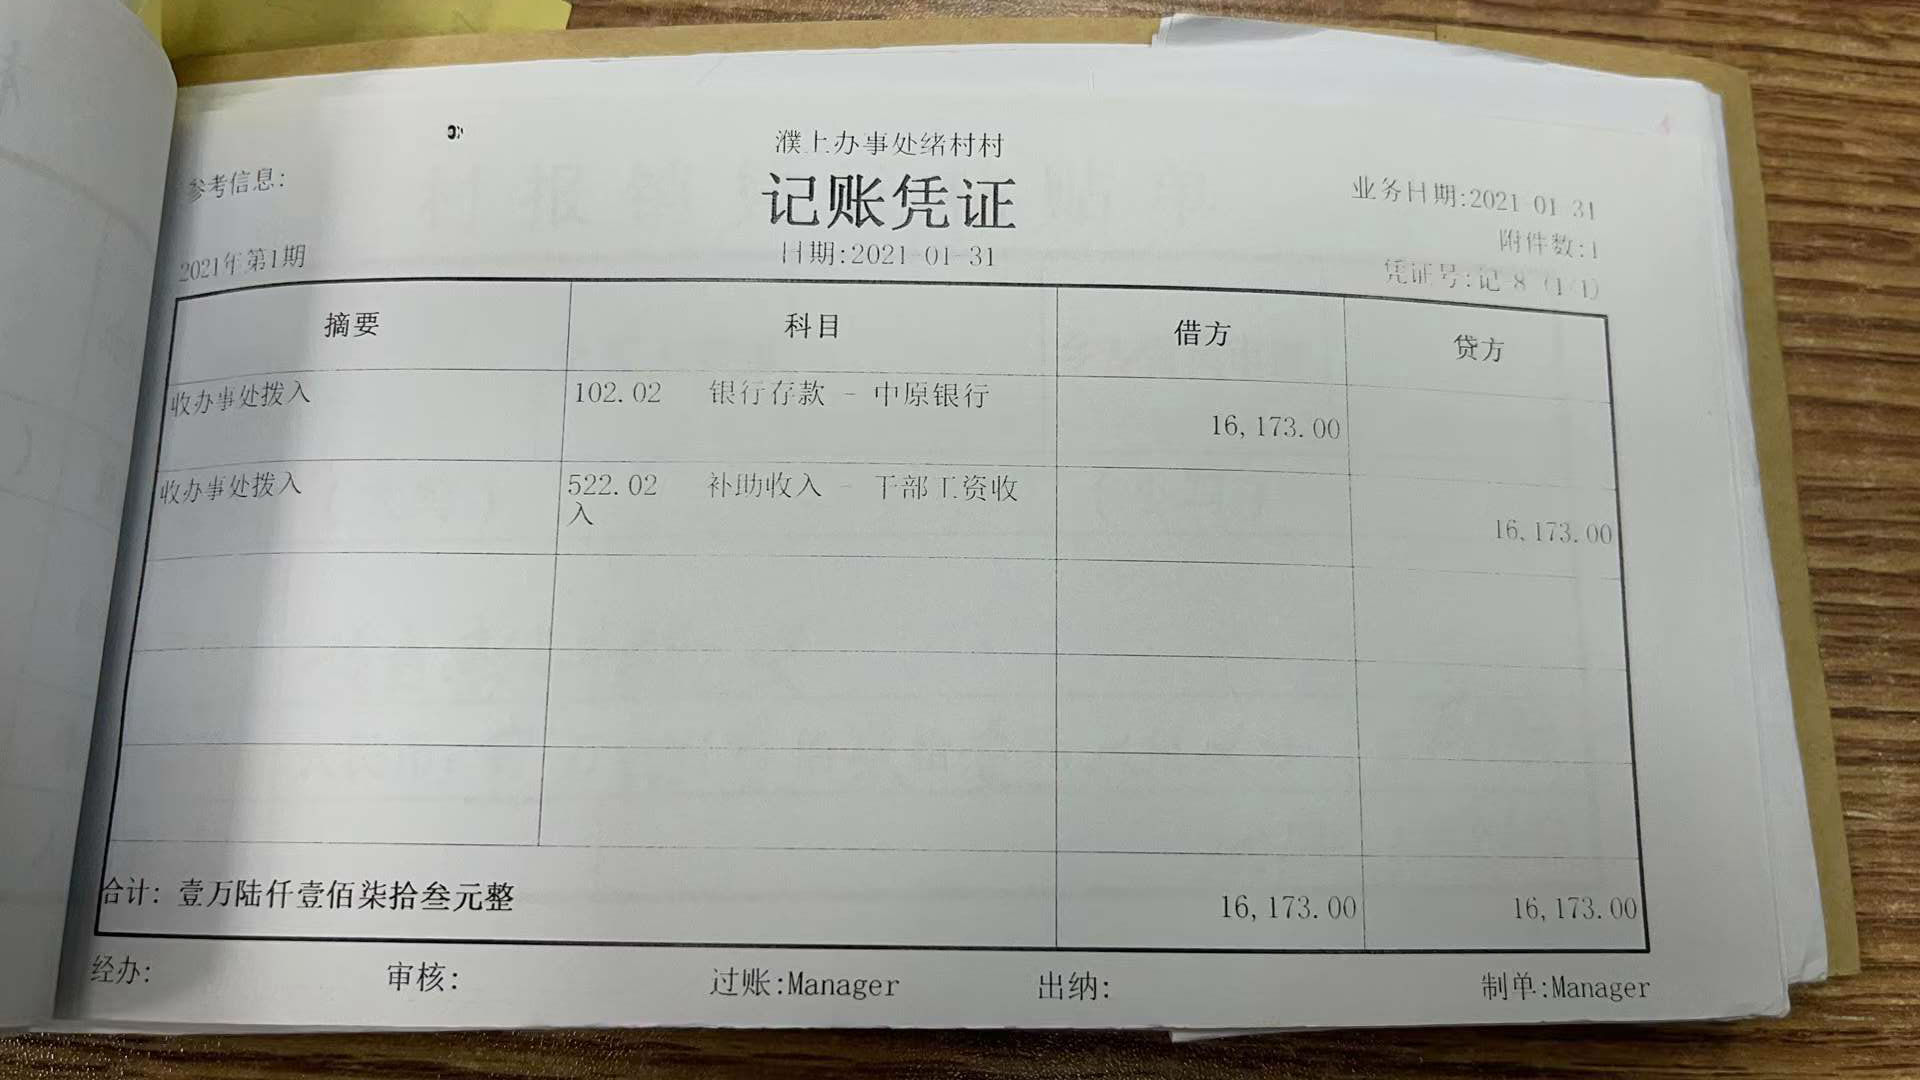 濮上办事处绪村村
参考信息:
记账凭证
业务日期:2021-01-31
日期:2021-01-31
附件数:1
2021年第1期
凭证号:记-8 (1/1)
摘要 科目 借方 贷方
收办事处拨入 102.02 银行存款 - 中原银行 16,173.00
收办事处拨入 522.02 补助收入 - 干部工资收
入 16,173.00
合计: 壹万陆仟壹佰柒拾叁元整 16,173.00 16,173.00
经办: 审核: 过账:Manager 出纳: 制单:Manager